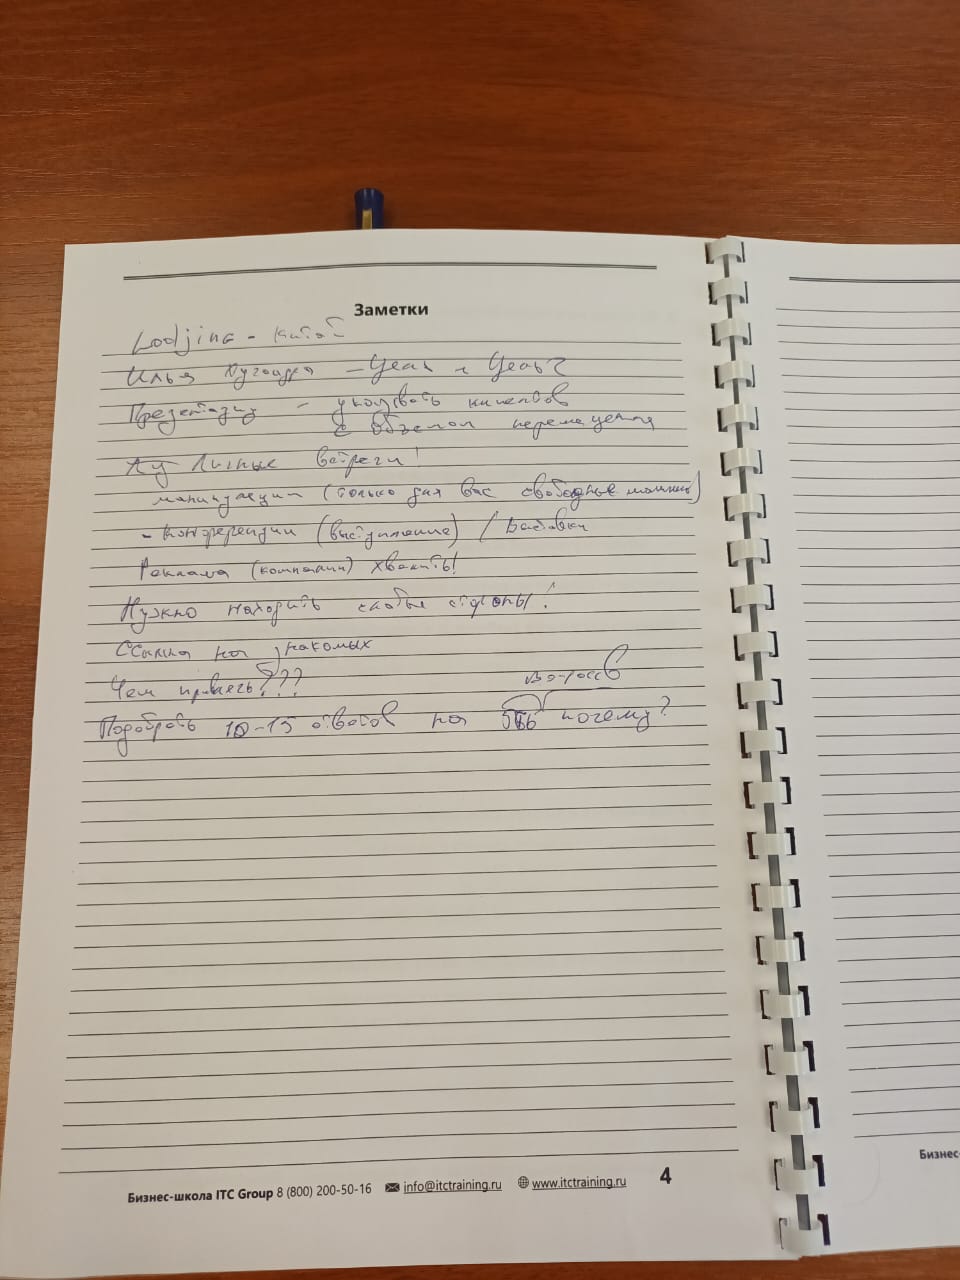 Заметки
Lodjing - Китай
Илья
Презентация - указывать клиентов
с объемом перемещения
Личные встречи!
манипуляции (только для вас свободные машины)
- Конференции (выступление) / Выставки
Реклама (компании) хвалить!
Нужно находить слабые стороны!
Ссылка на знакомых
Чем привлечь???
вопросов
Подобрать 10-15 ответов на почему?
Бизнес-школа ITC Group 8 (800) 200-50-16 info@itctraining.ru www.itctraining.ru 4
Бизнес-